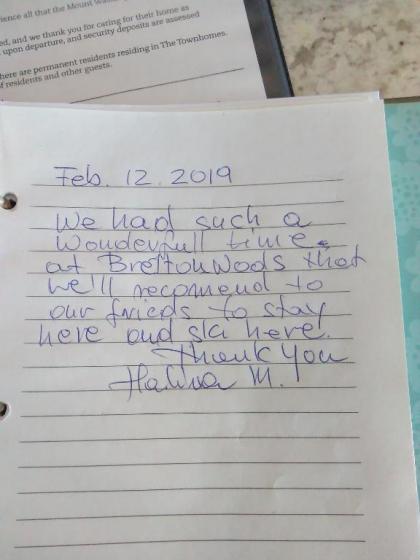 ience all that the Mount Wash
ed, and we thank you for caring for their home as
upon departure, and security deposits are assessed
here are permanent residents residing in The Townhomes.
f residents and other guests.
Feb. 12. 2019
We had such a
Wonderfull time
at Bretton Woods that
we'll recomend to
our frieds to stay
here and ski here.
Thank You
Halina M.